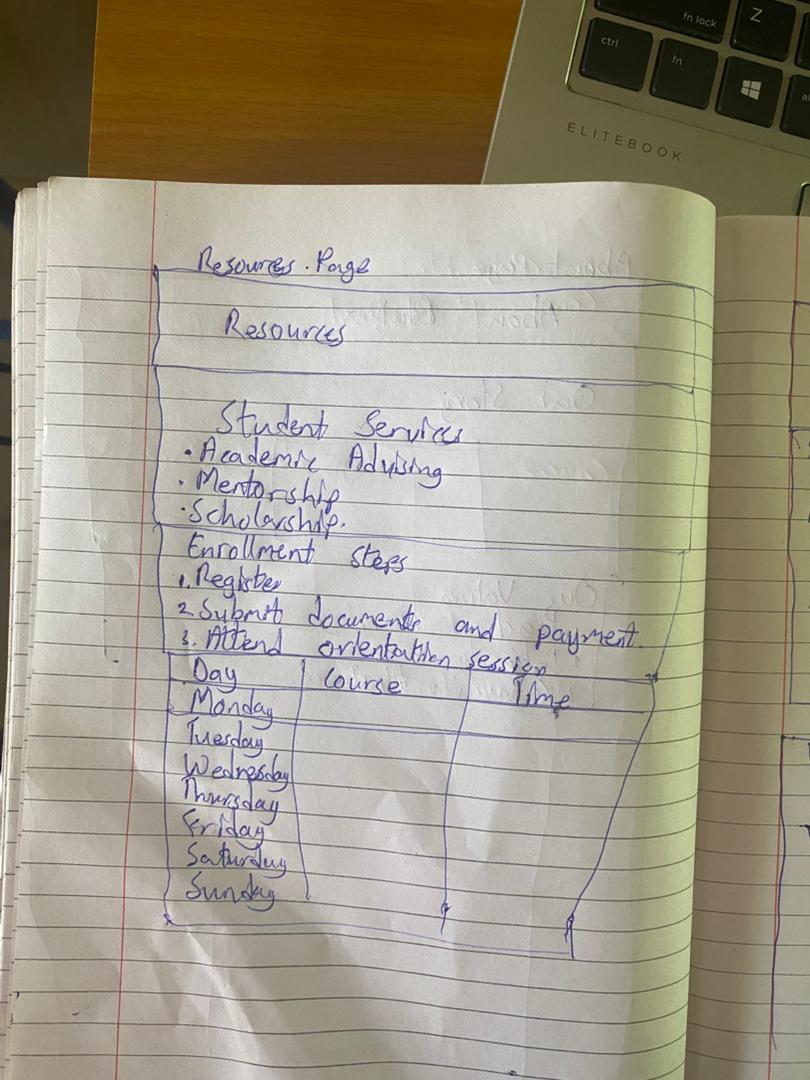 fn lock
Z
ctrl
fn
ELITEBOOK
Resources. Page
Resources
Student Services
• Academic Advising
• Mentorship
• Scholarship.
Enrollment steps
1. Register
2. Submit documents and payment.
3. Attend orientation session
Day Course Time
Monday
Tuesday
Wednesday
Thursday
Friday
Saturday
Sunday